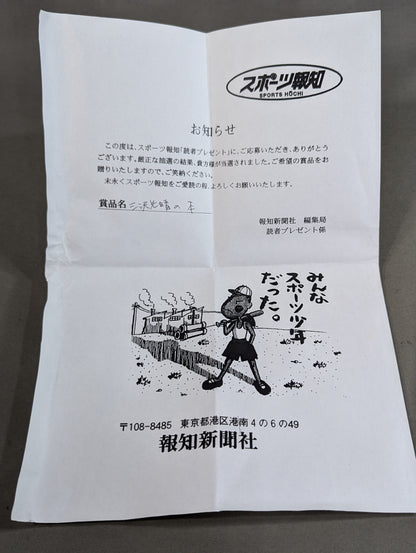 スポーツ報知
SPORTS HOCHI
お知らせ
この度は、スポーツ報知「読者プレゼント」に、ご応募いただき、ありがとう
ございます。厳正な抽選の結果、貴方様が当選されました。ご希望の賞品をお
贈りいたしますので、ご笑納ください。
末永くスポーツ報知をご愛読の程、よろしくお願いいたします。
賞品名 三沢光晴の本
報知新聞社 編集局
読者プレゼント係
みんな
スポーツ少年
だった。
〒108-8485 東京都港区港南4の6の49
報知新聞社